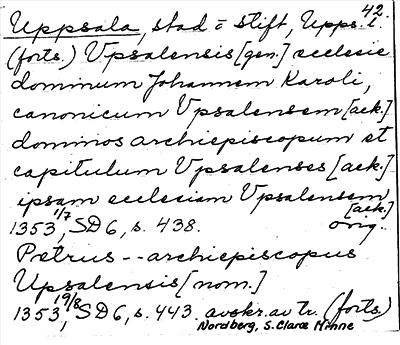 42.
Uppsala, stad = stift, Upps. l.
(forts.) Upsalensis [gen.] ecclesie
dominum Johannem Karoli,
canonicum Upsalensem [ack.]
dominos archiepiscopum et
capitulum Upsalenses [ack.]
ipsam ecclesiam Upsalensem
[ack.]
1353 1/7, SD 6, s. 438. orig.
Petrus -- archiepiscopus
Upsalensis [nom.]
1353 19/8, SD 6, s. 443. avskr. av tr. (forts.)
Nordberg, S. Claræ Minne